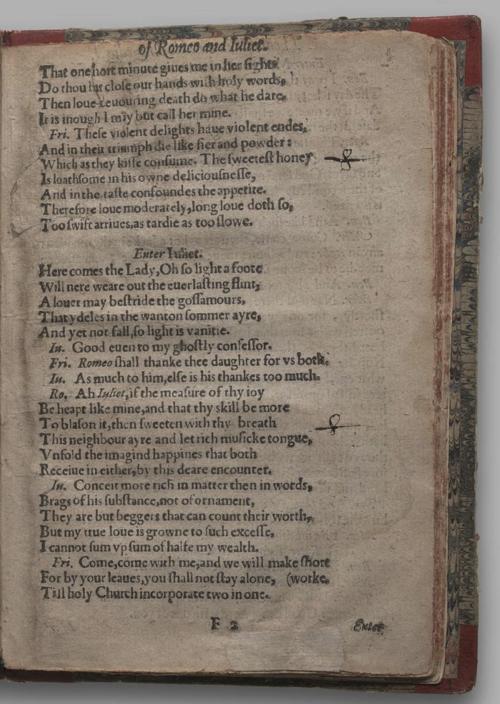 of Romeo and Iuliet.
That one short minute giues me in her sight:
Do thou but close our hands with holy words,
Then loue-deuouring death do what he dare,
It is inough I may but call her mine.
Fri. These violent delights haue violent endes,
And in their triumph die like fier and powder:
Which as they kisse consume. The sweetest honey
Is loathsome in his owne deliciousnesse,
And in the taste confoundes the appetite.
Therefore loue moderately, long loue doth so,
Too swift arriues, as tardie as too slowe.
Enter Iuliet.
Here comes the Lady, Oh so light a foote
Will nere weare out the euerlasting flint,
A louer may bestride the gossamours,
That ydeles in the wanton sommer ayre,
And yet not fall, so light is vanitie.
Iu. Good euen to my ghostly confessor.
Fri. Romeo shall thanke thee daughter for vs both.
Iu. As much to him, else is his thankes too much.
Ro. Ah Iuliet, if the measure of thy ioy
Be heapt like mine, and that thy skill be more
To blason it, then sweeten with thy breath
This neighbour ayre and let rich musicke tongue,
Vnfold the imagind happines that both
Receiue in either, by this deare encounter.
Iu. Conceit more rich in matter then in words,
Brags of his substance, not of ornament,
They are but beggers that can count their worth,
But my true loue is growne to such excesse,
I cannot sum vp sum of halfe my wealth.
Fri. Come, come with me, and we will make short
For by your leaues, you shall not stay alone, (worke,
Till holy Church incorporate two in one.
F 2